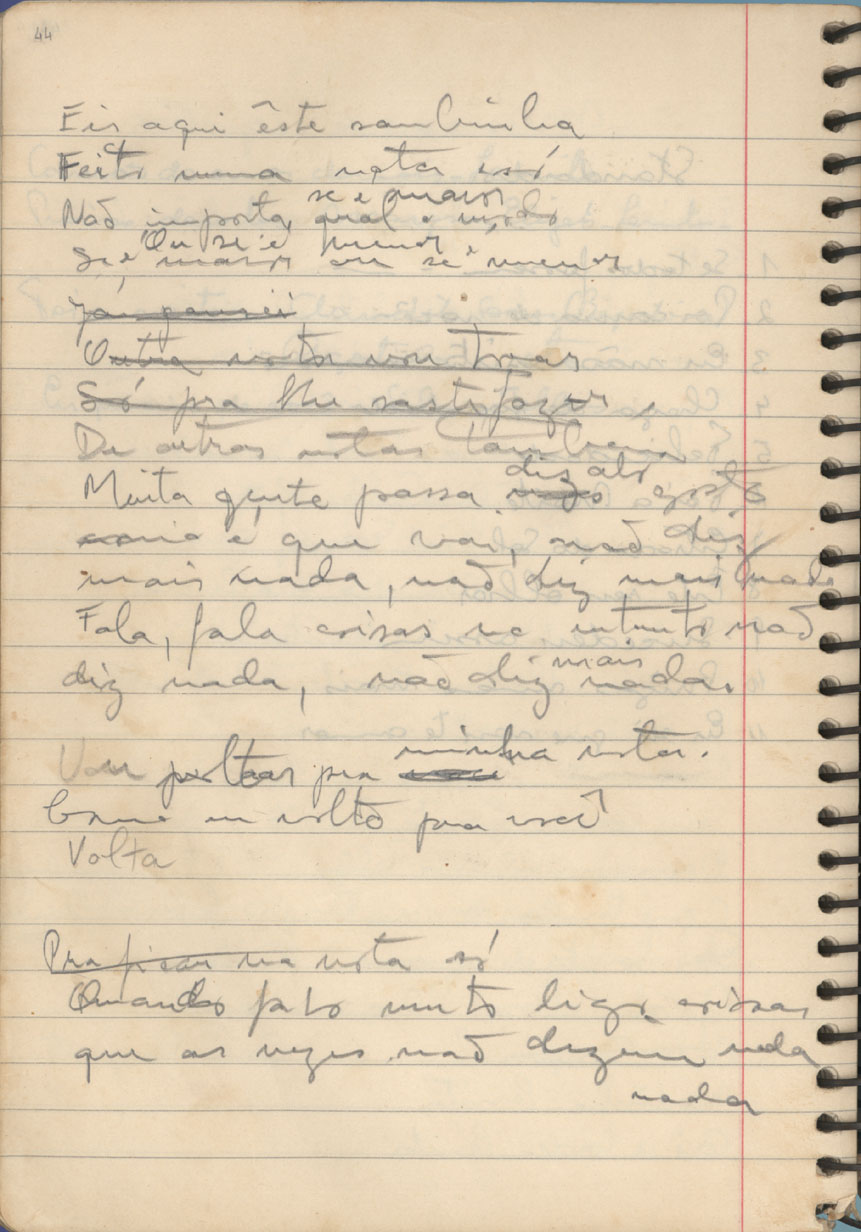 44
Eis aqui êste sambinha
Feito numa nota só
se é maior
Não importa qual o modo
Ou se é menor
Se é maior ou se é menor
Já pensei
Outra nota vou tocar
Só pra lhe sastifazer
De outras notas também
diz alô
Muita gente passa gosto
é que vai, não diz
mais nada, não diz mais nada
Fala, fala coisas no intuito não
mais
diz nada, não diz nada
minha nota.
Vou voltar pra você
Como eu volto pra você
Volta
Pra ficar na nota só
Quando falo muito digo coisas
que as vezes não dizem nada
nada